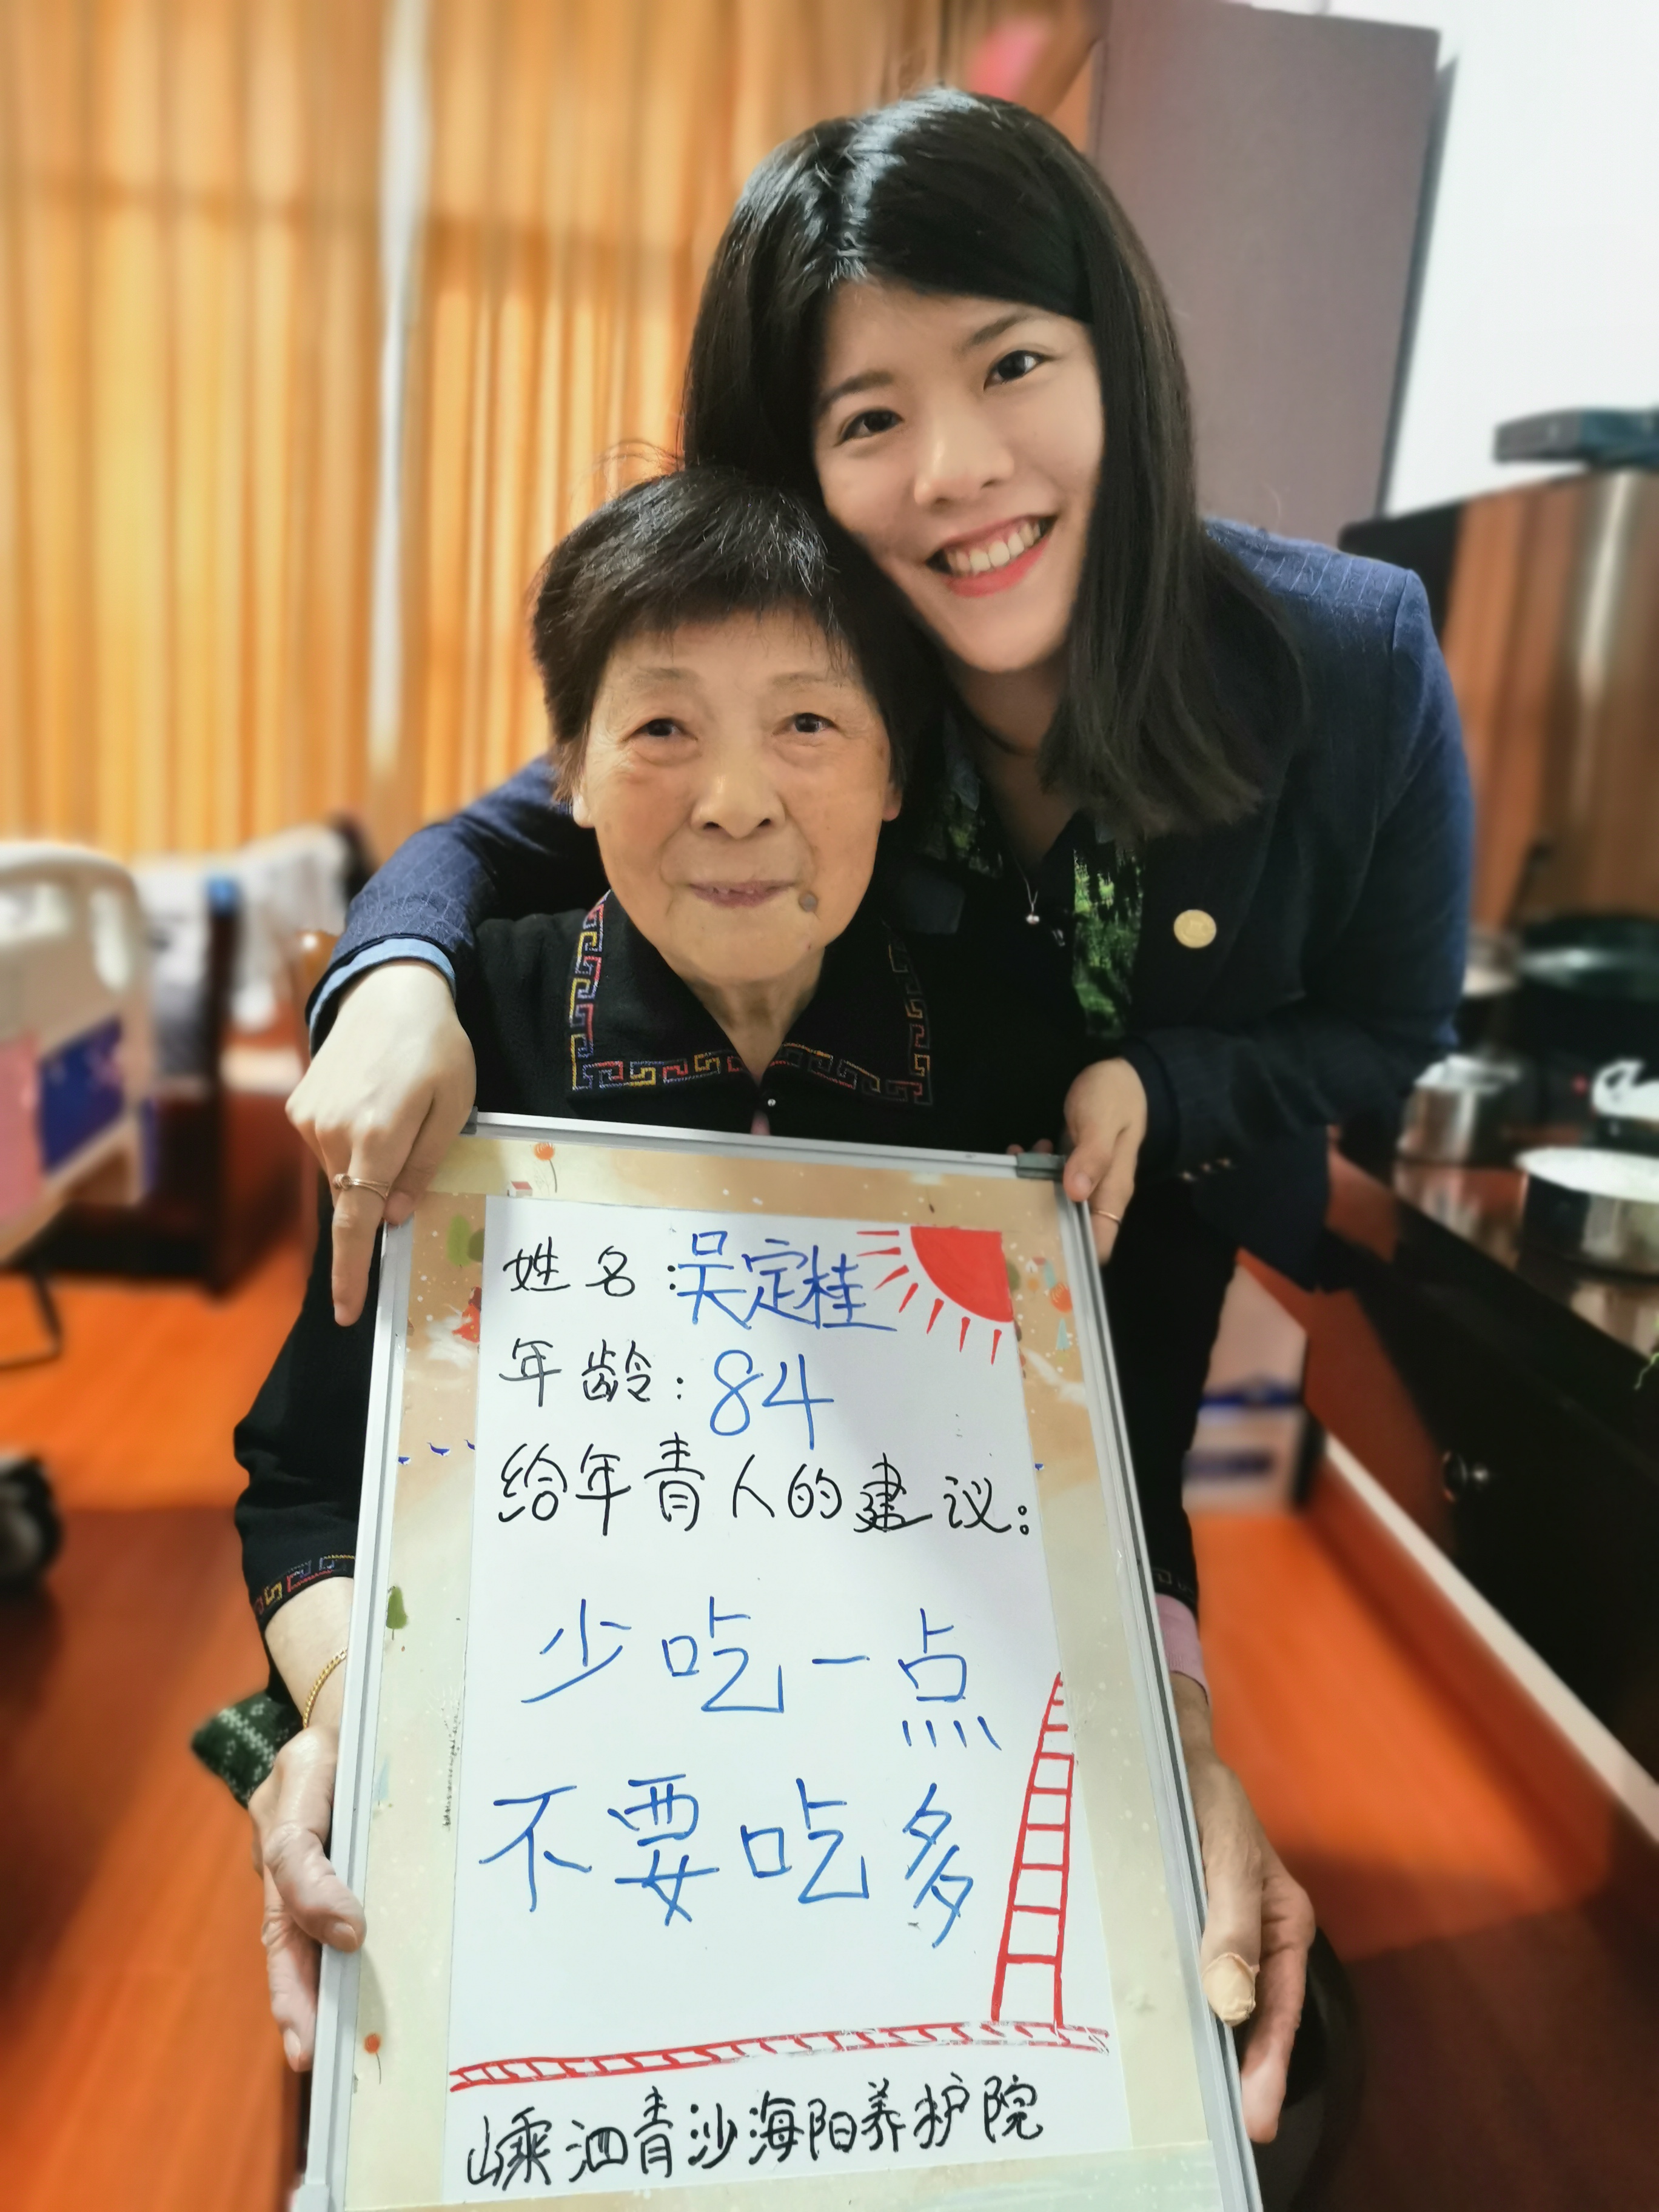 姓名:吴定桂
年龄:84
给年青人的建议:
少吃一点
不要吃多
嵊泗青沙海阳养护院